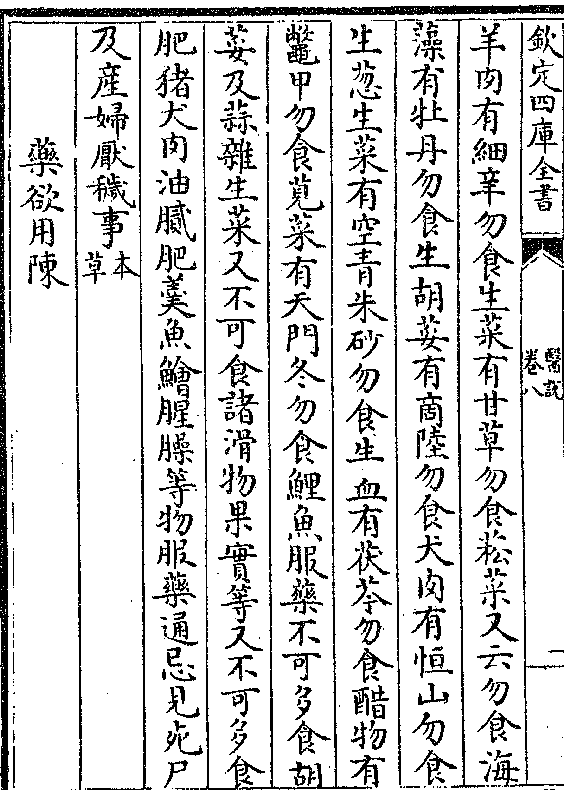 欽定四庫全書
醫說
卷八
二
羊肉有細辛勿食生菜有甘草勿食菘菜又云勿食海
藻有牡丹勿食生胡荽有商陸勿食犬肉有恒山勿食
生葱生菜有空青朱砂勿食生血有茯苓勿食醋物有
鼈甲勿食莧菜有天門冬勿食鯉魚服藥不可多食胡
荽及蒜雜生菜又不可食諸滑物果實等又不可多食
肥猪犬肉油膩肥羹魚鱠腥臊等物服藥通忌見死尸
及産婦厭穢事本草
藥欲用陳